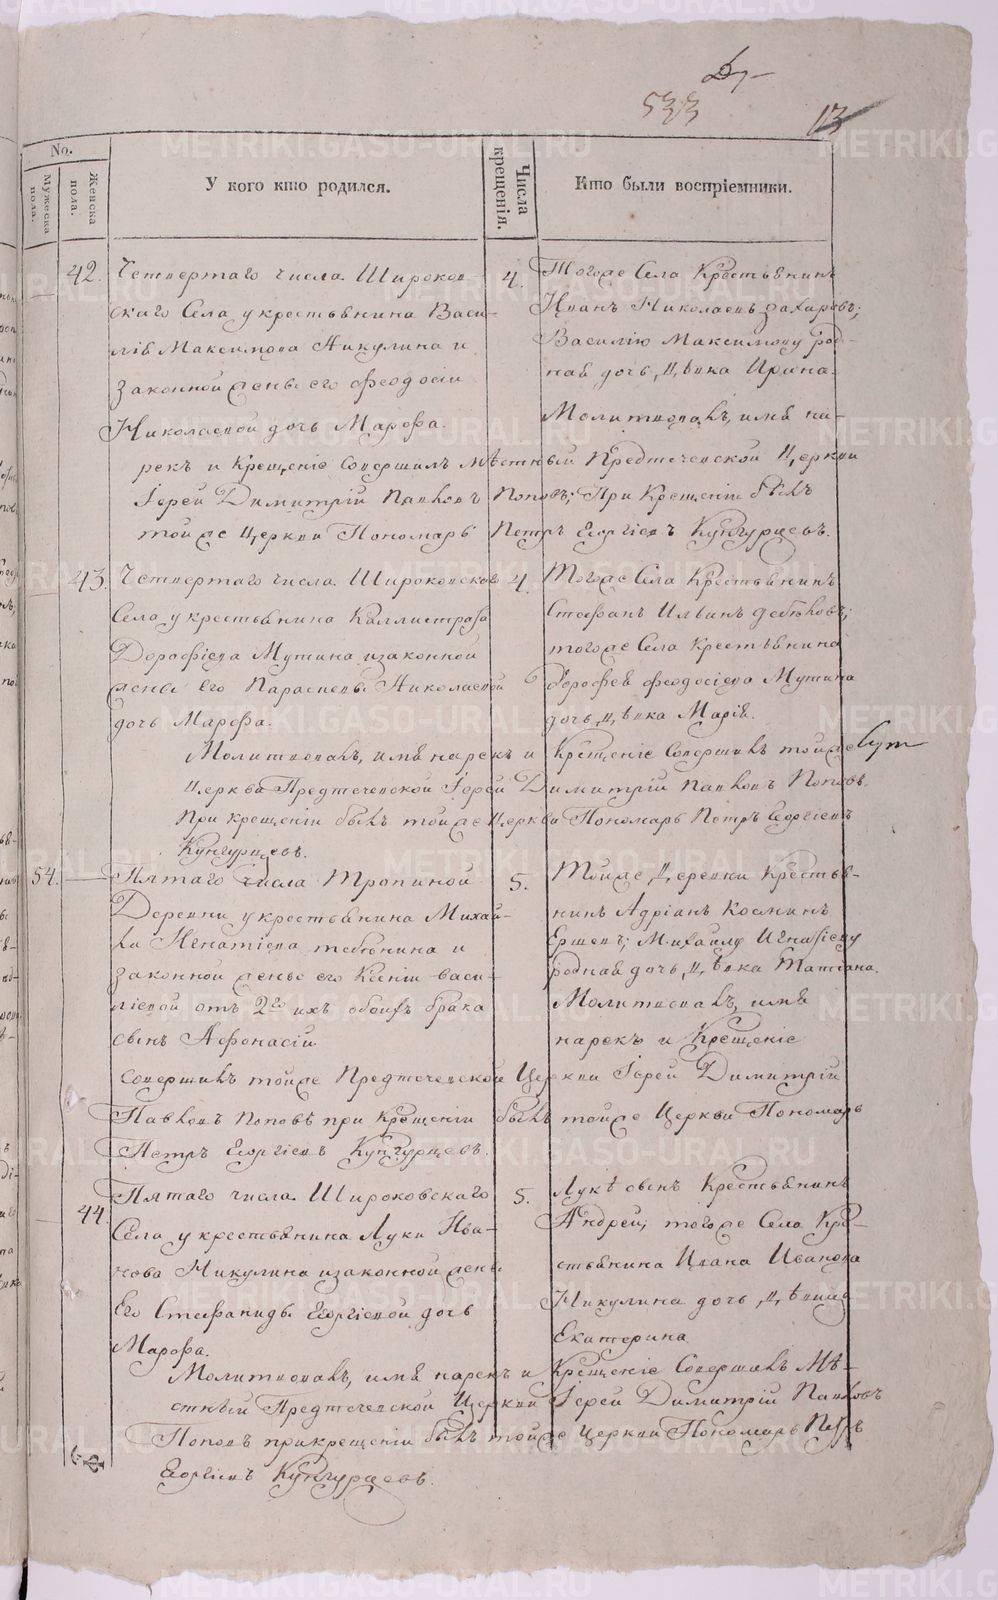 533
13
No.
Мужеска пола.
Женска пола.
У кого кто родился.
Числа крещенія.
Кто были воспріемники.
42.
Четвертаго числа Широков-
скаго Села у крестьянина Васи-
лія Максимова Никулина и
законной жены его Феодосіи
Николаевой дочь Марѳа.
4.
Тогоже Села Крестьянинъ
Иванъ Николаевъ Захаровъ;
Василію Максимову род-
ная дочь дѣвка Ирина.
Молитвовалъ, имя на-
рекъ и Крещеніе Совершилъ мѣстный Предтечевской Церкви
Іерей Димитрій Павловъ Поповъ; При Крещеніи былъ
тойже Церкви Пономарь Петръ Георгіевъ Кунгурцевъ.
43.
Четвертаго числа Широковскаго
Села у крестьянина Каллистрата
Дороѳіева Мутина и законной
жены его Параскевы Николаевой
дочь Марѳа.
4.
Тогоже Села Крестьянинъ
Стефанъ Ильинъ
тогоже Села Крестьянина
Дорофея Феодосіева Мутина
дочь дѣвка Марія.
Молитвовалъ, имя нарекъ и Крещеніе Совершилъ тойже
Церкви Предтечевской Іерей Димитрій Павловъ Поповъ.
При крещеніи былъ тойже Церкви Пономарь Петръ Георгіевъ
Кунгурцевъ.
54.
Пятаго числа Тропиной
Деревни у крестьянина Михай-
ла Игнатіева и
законной жены его Ксеніи Васи-
ліевой отъ 2го ихъ обоихъ брака
сынъ Афонасій
5.
Тойже Деревни Крестья-
нинъ Адріанъ Козминъ
Ершевъ; Михайлу Игнатіеву
родная дочь дѣвка Татіана.
Молитвовалъ, имя
нарекъ и Крещеніе
совершилъ тойже Предтечевской Церкви Іерей Димитрій
Павловъ Поповъ при крещеніи былъ тойже Церкви Пономарь
Петръ Георгіевъ Кунгурцевъ.
44.
Пятаго числа Широковскаго
Села у крестьянина Луки Ива-
нова Никулина и законной жены
Его Стефаниды Георгіевой дочь
Марѳа.
5.
Лукѣ сынъ Крестьянинъ
Андрей; тогоже Села Кре-
стьянина Ивана Иванова
Никулина дочь дѣвица
Екатерина
Молитвовалъ, имя нарекъ и Крещеніе Совершилъ Мѣ-
стный Предтечевской Церкви Іерей Димитрій Павловъ
Поповъ при крещеніи былъ тойже Церкви Пономарь Петръ
Георгіевъ Кунгурцевъ.
METRIKI.GASO-URAL.RU